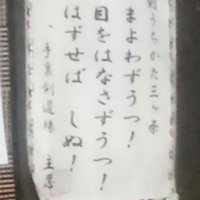 剣うちかた三ヶ条
まよわずうつ！
目をはなさずうつ！
はずせば しぬ！
手裏剣道場 主忍